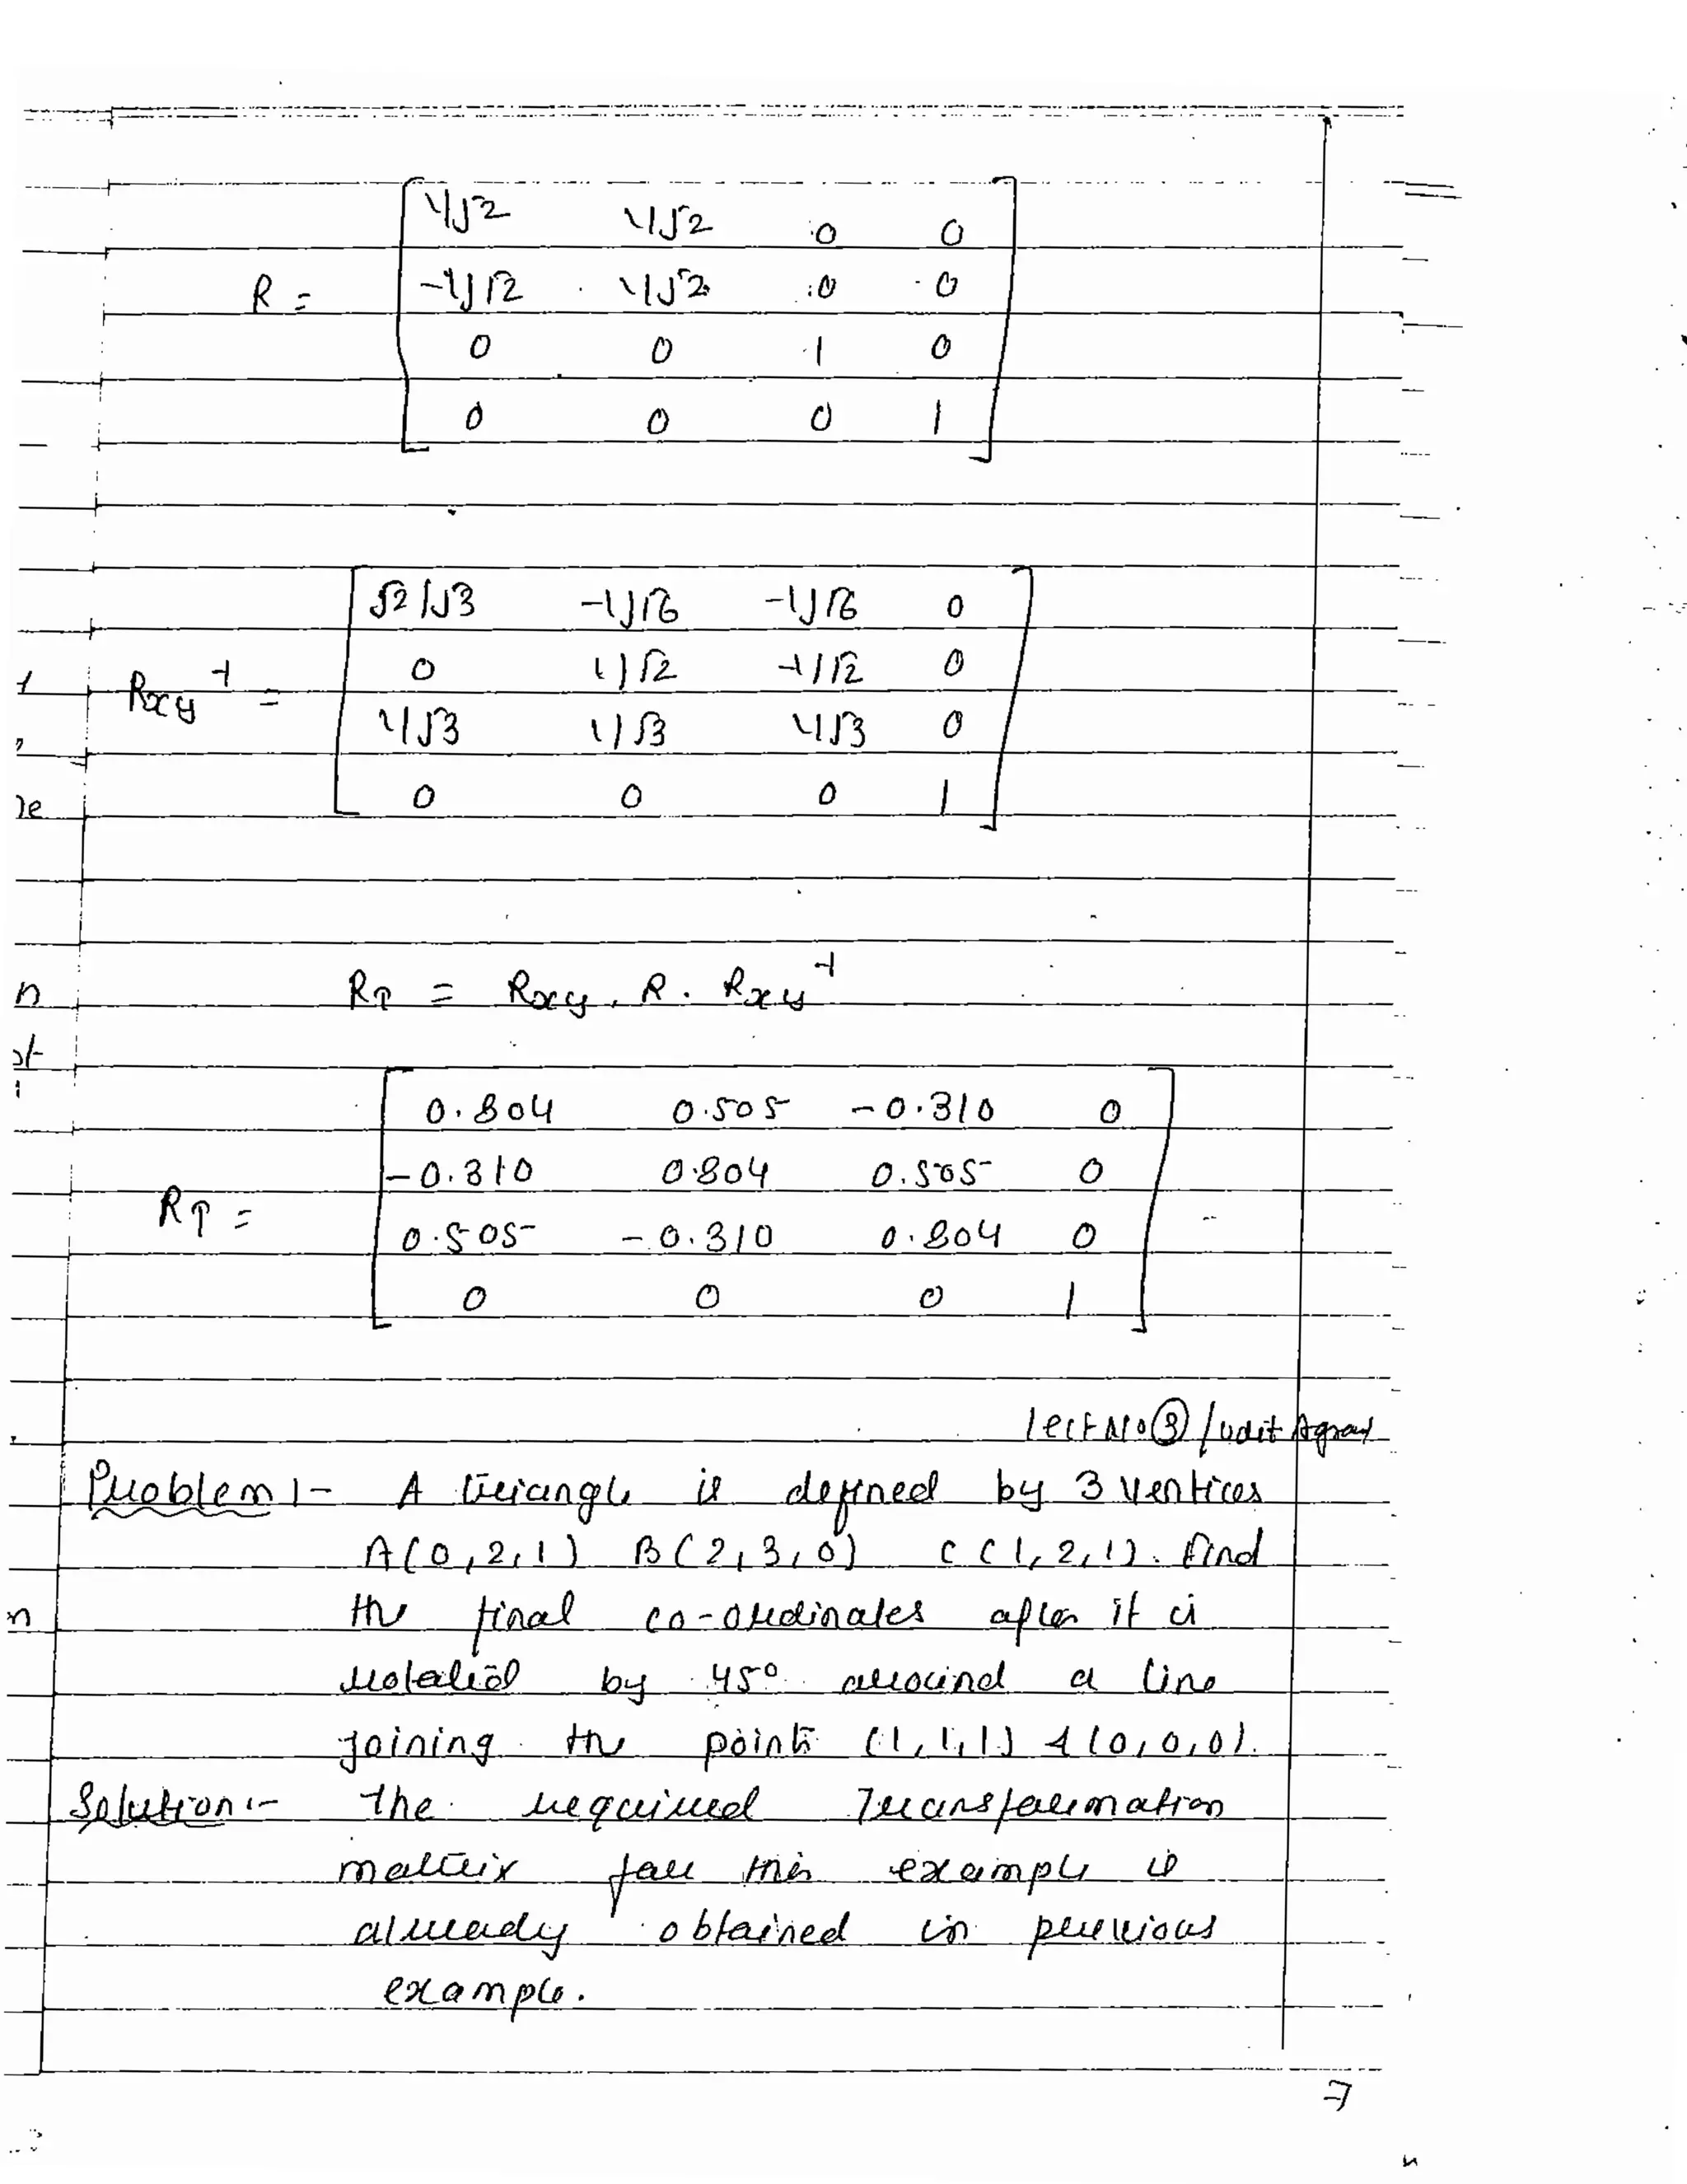 1/√2 1/√2 0 0
R = -1/√2 1/√2 0 0
0 0 1 0
0 0 0 1
√2/√3 -1/√6 -1/√6 0
Rxy⁻¹ = 0 1/√2 -1/√2 0
1/√3 1/√3 1/√3 0
0 0 0 1
RT = Rxy . R . Rxy⁻¹
0.804 0.505 -0.310 0
-0.310 0.804 0.505 0
RT = 0.505 -0.310 0.804 0
0 0 0 1
Lect No 3 / Udit Agrawal
Problem :- A triangle is defined by 3 vertices
A(0,2,1) B(2,3,0) C(1,2,1). Find
the final co-ordinates after it is
rotated by 45° around a line
joining the points (1,1,1) & (0,0,0).
Solution :- The required Transformation
matrix for this example is
already obtained in previous
example.
7